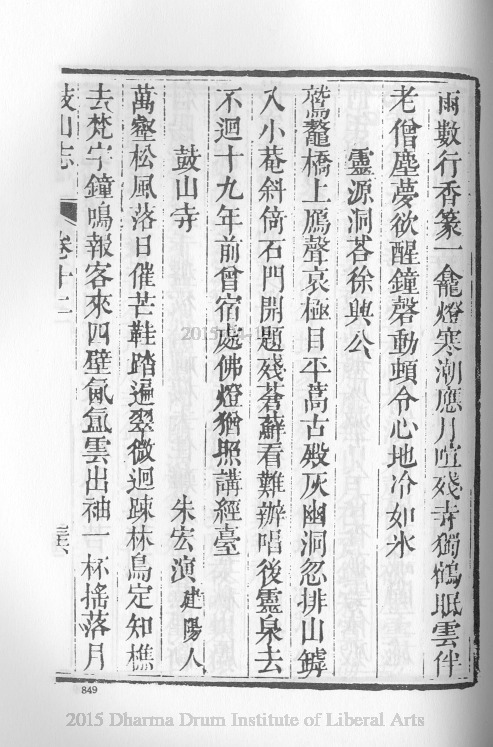 雨數行香篆一龕燈寒潮應月喧殘寺獨鶴眠雲伴
老僧塵夢欲醒鐘磬動頓令心地冷如氷
靈源洞荅徐興公
鷲鼇橋上鴈聲哀極目平蕪古殿灰幽洞忽排山罅
入小菴斜倚石門開題殘蒼蘚看難辦唱後靈泉去
不迴十九年前曾宿處佛燈猶照講經臺
鼓山寺
朱宏演 建陽人
萬壑松風落日催芒鞋踏遍翠微迴踈林鳥定知樵
去梵宇鐘鳴報客來四壁氤氳雲出袖一杯搖落月
鼓山志 卷十二
849
2015 Dharma Drum Institute of Liberal Arts